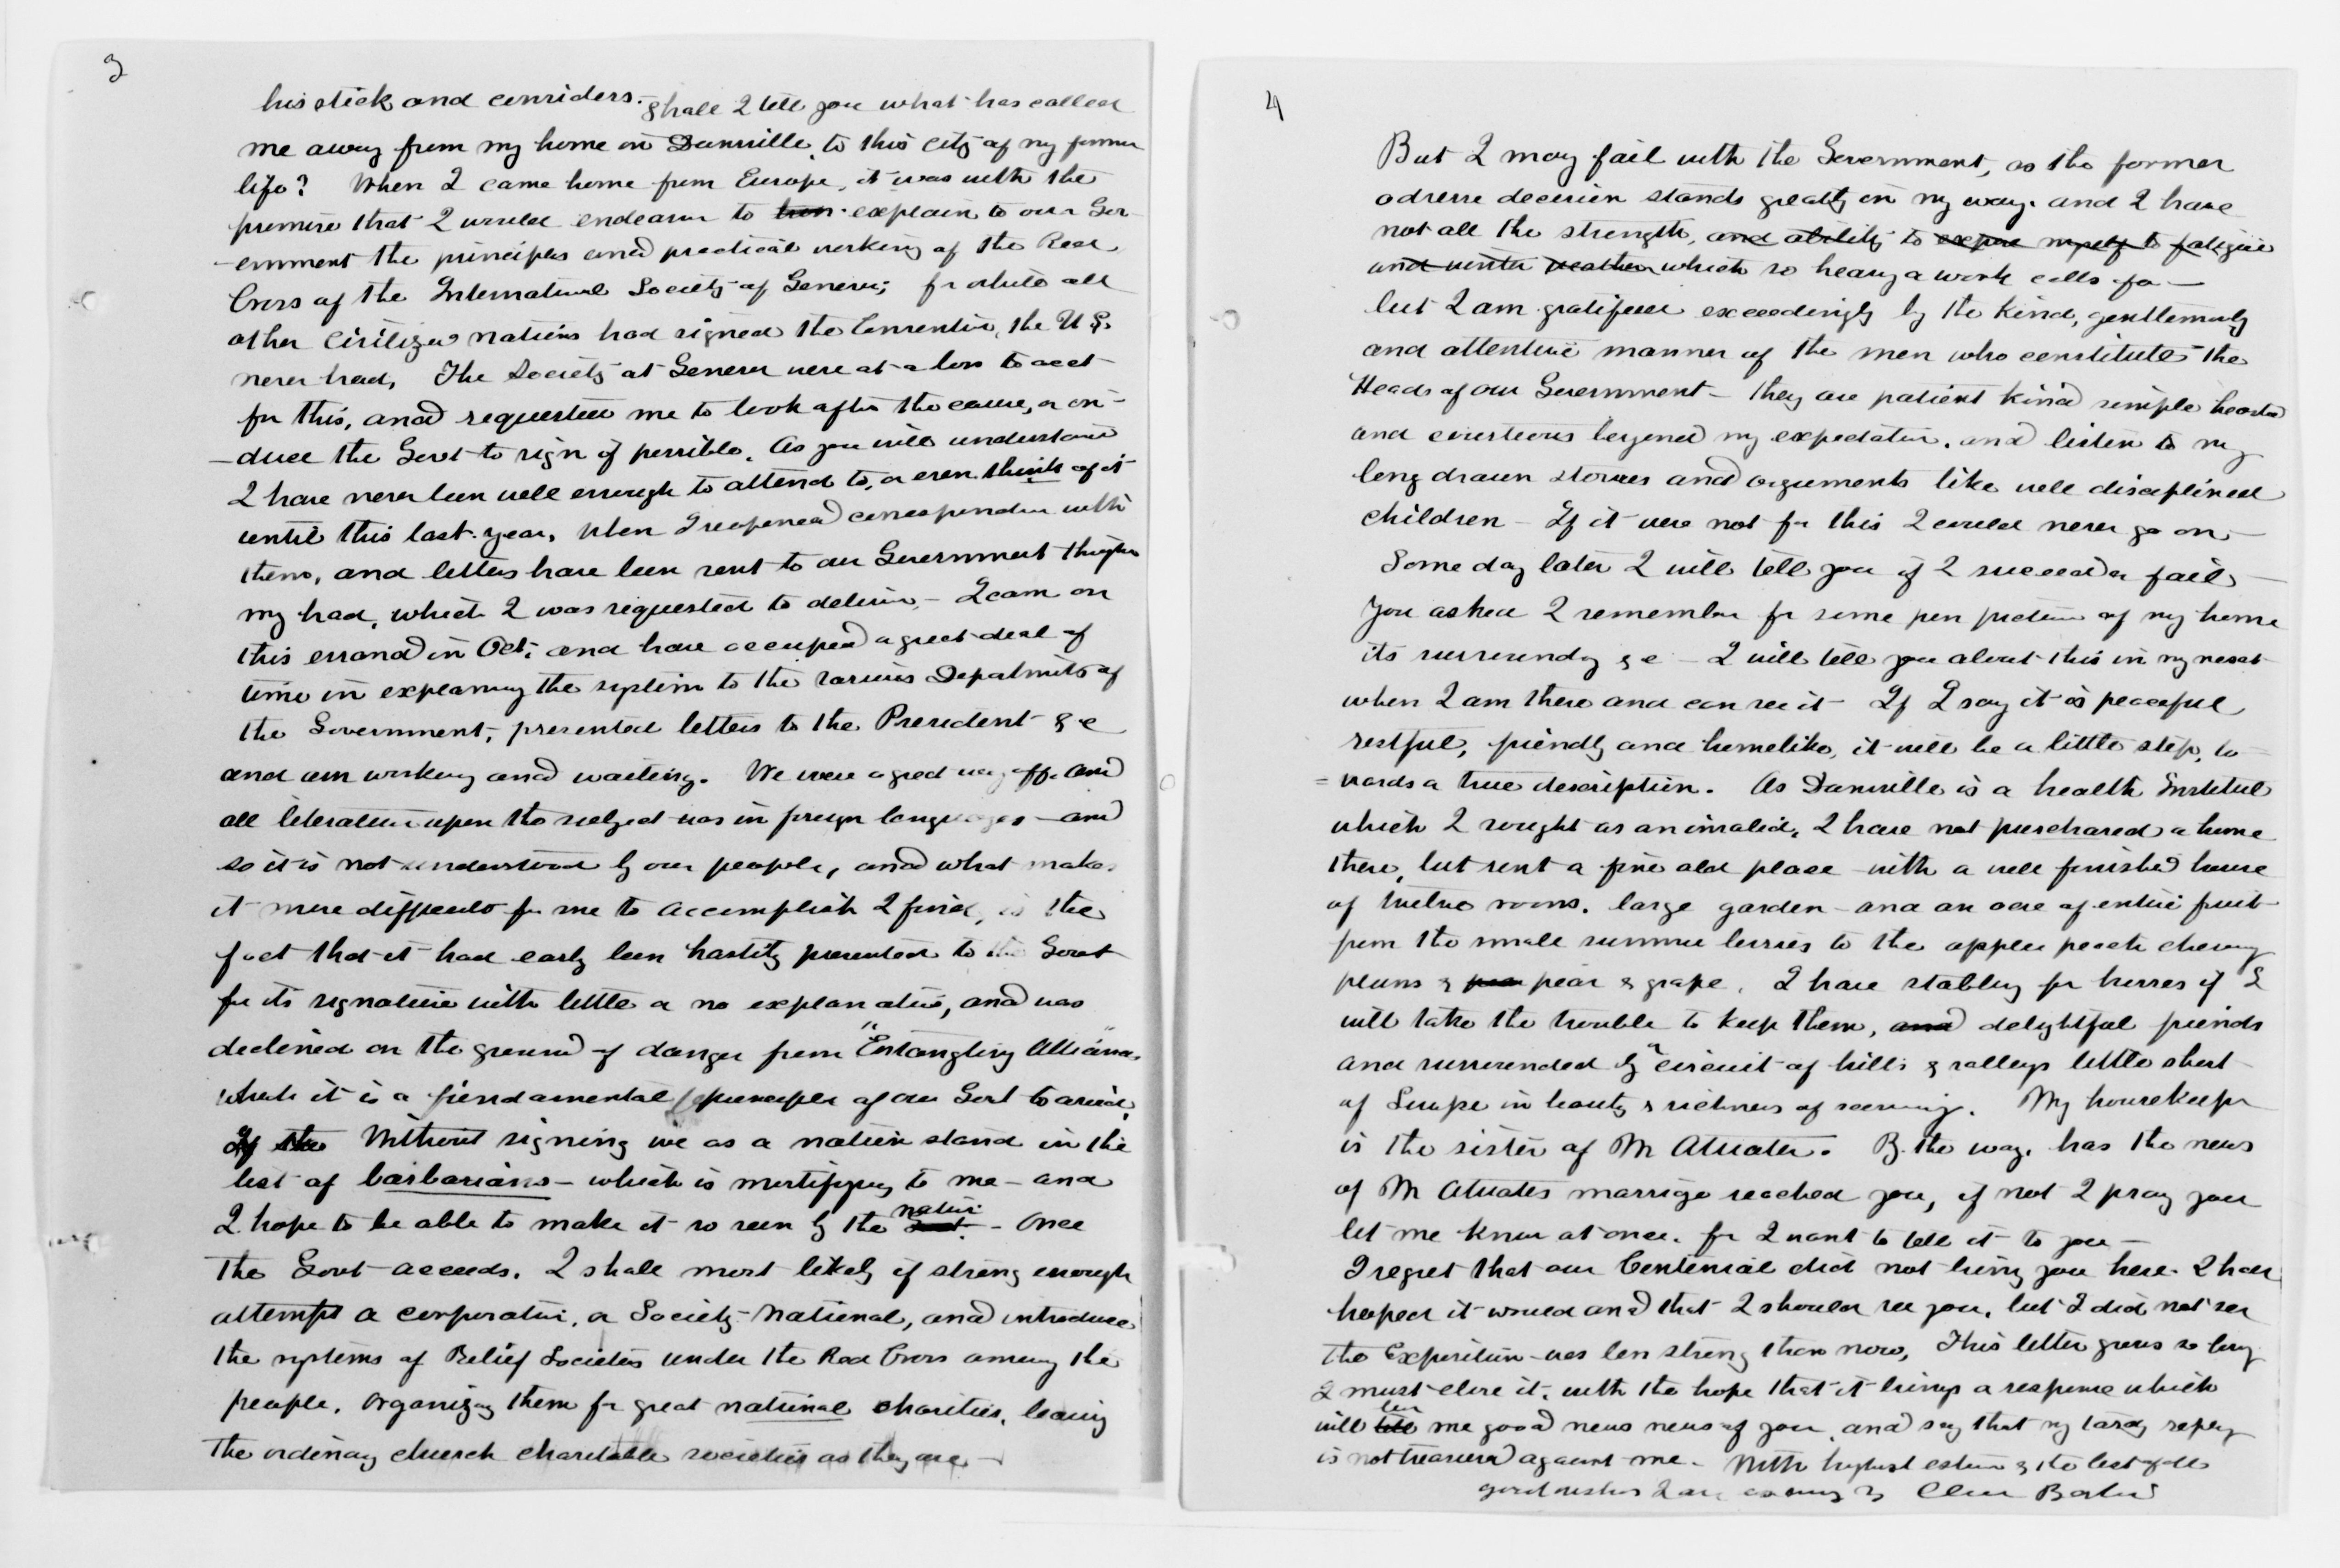 3
his stick and considers. Shall I tell you what has called
me away from my home in Dansville, to this city of my former
life? When I came home from Europe, it was with the
promise that I would endeavor to explain to our Gov-
-ernment the principles and practical working of the Red
Cross of the International Society of Geneva; for while all
other civilized nations had signed the Convention, the U S.
never had. The Society at Geneva were at a loss to acct
for this, and requested me to look after the cause, or in-
-duce the Govt to sign if possible. As you will understand
I have never been well enough to attend to, or even think of it
until this last year, when I reopened correspondence with
them, and letters have been sent to our Government through
my had, which I was requested to deliver, - I cam on
this errand in Oct; and have occupied a great deal of
time in explaining the system to the various Departmets of
the Government, presented letters to the President &c
and am working and waiting. We were a great way off. and
all literature upon the subject was in foreign languages - and
so it is not understood by our people, and what makes
it more difficult for me to accomplish I find, is the
fact that it had early been hastily presented to the Govt
for its signature with little or no explanation, and was
declined on the ground of danger from "Entangling Alliances"
which it is a fundamental principle of our Govt to avoid.
If the Without signing we as a nation stand in the
list of barbarians - which is mortifying to me - and
I hope to be able to make it so seen by the nation. - Once
the Govt acceeds. I shall most likely if strong enough
attempt a corporation, or Society National, and introduce
the systems of Relief Societies under the Red Cross among the
people. Organizing them for great national charities, leaving
the ordinary church charitable societies as they are -
4
But I may fail with the Government, as the former
adverse decision stands greatly in my way. and I have
not all the strength, and ability to expose myself to fatigue
and winter weather which so heavy a work calls for -
but I am gratified exceedingly by the kind, gentlemanly
and attentive manner of the men who constitute the
Heads of our Government - they are patient kind simple hearted
and courteous beyond my expectation. and listen to my
long drawn stories and arguments like well disciplined
children - If it were not for this I could never go on -
Some day later I will tell you if I succeed or fail -
You asked I remember for some pen picture of my home
its surroundg &c - I will tell you about this in my next
when I am there and can see it - If I say it is peaceful
restful, friendly and homelike, it will be a little step, to=
=wards a true description. As Dansville is a health Institute
which I sought as an invalid, I have not purchased a home
there, but rent a fine old place with a well finished house
of twelve rooms. large garden - and an acre of entire fruit
from the small summer berries to the apple peach cherry
plums & pear & grape. I have stabling for horses if I
will take the trouble to keep them, and delightful friends
and surrounded by a circuit of hills & valleys little short
of Europe in beauty & richness of scenery. My housekeeper
is the sister of M Atwater. By the way, has the news
of M Atwaters marriage reached you, if not I pray you
let me know at once. for I want to tell it to you -
I regret that our Centenial did not bring you here. I had
hoped it would and that I should see you, but I did not see
the Exposition - was less strong than now, This letter grows so long
I must close it, with the hope that it brings a response which
will me good news news of you, and say that my tardy reply
is not treasured against me - With highest esteem & the best of all
good wishes I am Clara Barton